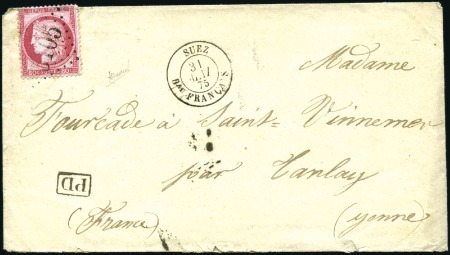 SUEZ
31
75
BAU FRANÇAIS
Madame
Fourcade à Saint=Vinnemer
par Tanlay
PD
(France)
(yonne)